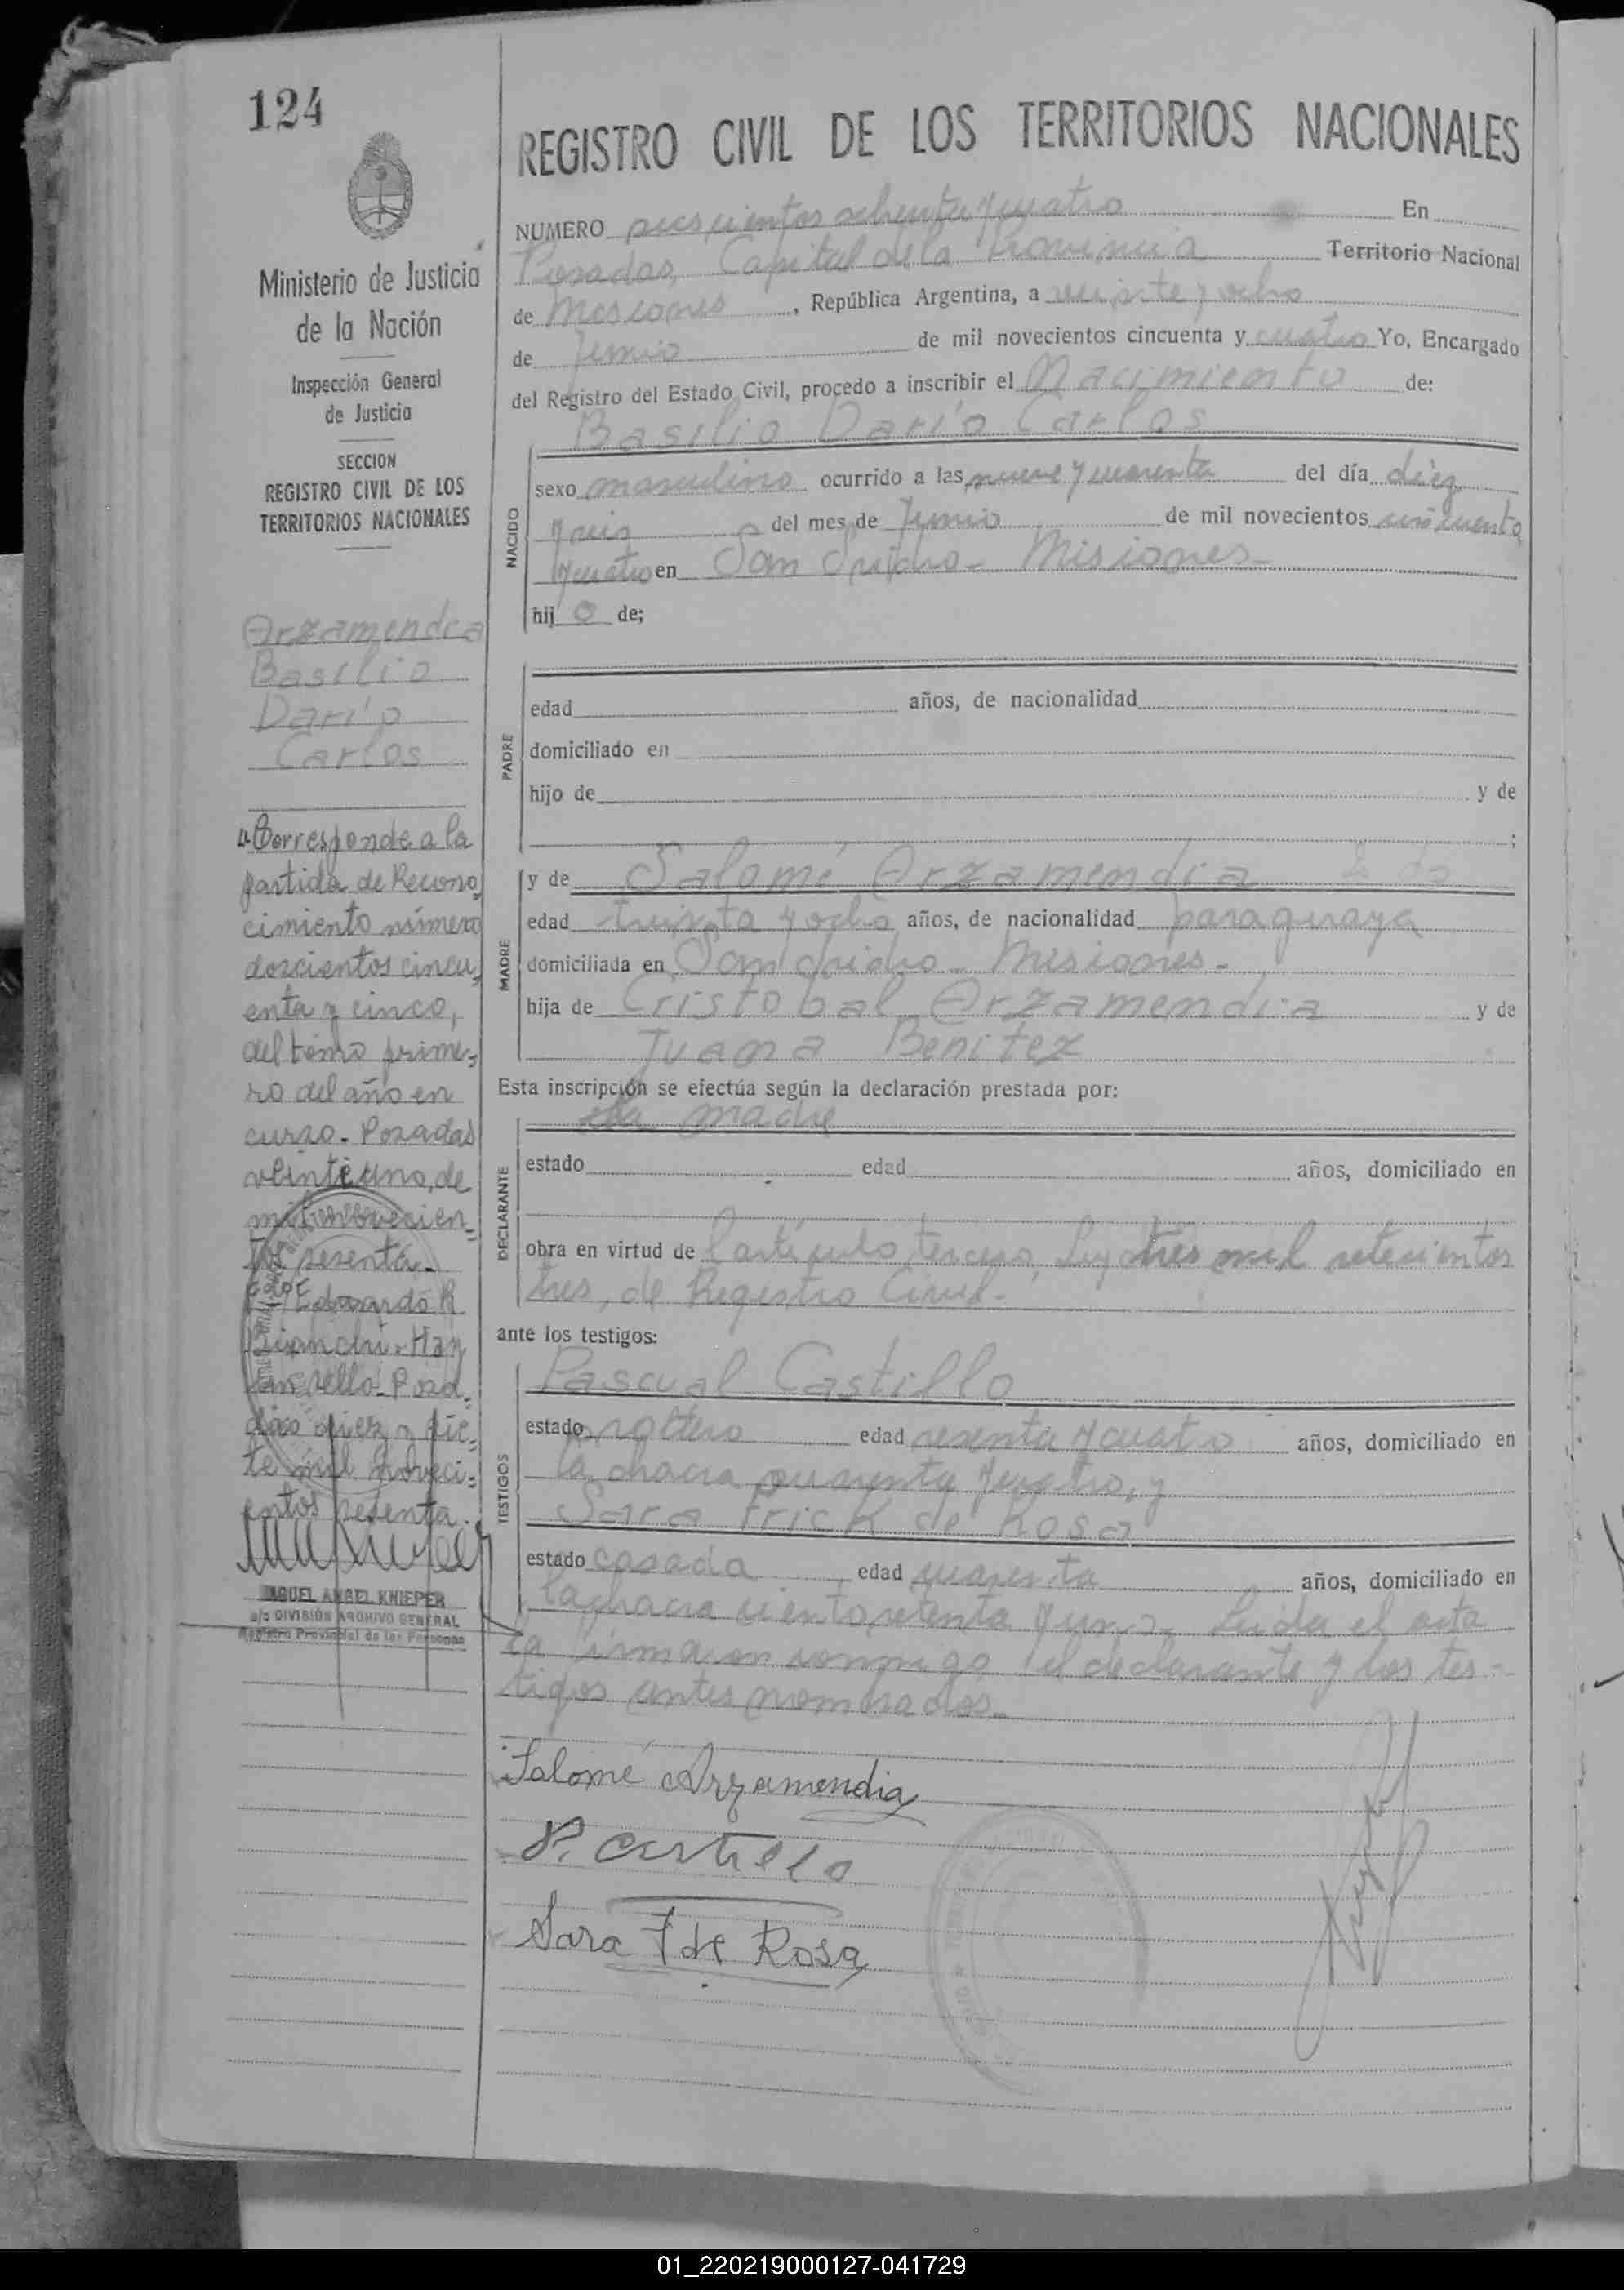 124
Ministerio de Justicia
de la Nación
Inspección General
de Justicia
SECCION
REGISTRO CIVIL DE LOS
TERRITORIOS NACIONALES
Arzamendia
Basilio
Darío
Carlos
Corresponde a la
partida de Recono
cimiento número
doscientos cincu
enta y cinco,
del tomo prime
ro del año en
curso. Posadas
veintiuno, de
mil novecien
tos sesenta.
Eduardo R
Bianchi. Hay
un sello. Posa
das diez y sie
te mil noveci
entos sesenta.
MIGUEL ANGEL KNIEPER
a/c DIVISIÓN ARCHIVO GENERAL
Registro Provincial de las Personas
REGISTRO CIVIL DE LOS TERRITORIOS NACIONALES
NUMERO seiscientos ochenta y cuatro En
Posadas, Capital de la Provincia Territorio Nacional
de Misiones, República Argentina, a veinte y ocho
de Junio de mil novecientos cincuenta y cuatro Yo, Encargado
del Registro del Estado Civil, procedo a inscribir el Nacimiento de:
Basilio Darío Carlos
NACIDO
sexo masculino ocurrido a las nueve y cuarenta del día diez
y seis del mes de Junio de mil novecientos cincuenta
y cuatro en San Isidro - Misiones -
hij o de;
PADRE
edad años, de nacionalidad
domiciliado en
hijo de y de
;
MADRE
y de Salomé Arzamendia
edad treinta y ocho años, de nacionalidad paraguaya
domiciliada en San Isidro - Misiones -
hija de Cristobal Arzamendia y de
Juana Benitez
Esta inscripción se efectúa según la declaración prestada por:
DECLARANTE
la madre
estado edad años, domiciliado en
obra en virtud de l artículo tercero, Ley tres mil setecientos
tres, de Registro Civil -
ante los testigos:
TESTIGOS
Pascual Castillo
estado soltero edad sesenta y cuatro años, domiciliado en
la chacra cuarenta y cuatro, y
Sara Frick de Rosa
estado casada, edad cuarenta años, domiciliado en
la chacra ciento setenta y una. Leida el acta
la firmaron conmigo el declarante y los tes-
tigos antes nombrados.
Salomé Arzamendia
P. Castillo
Sara F de Rosa
01_220219000127-041729